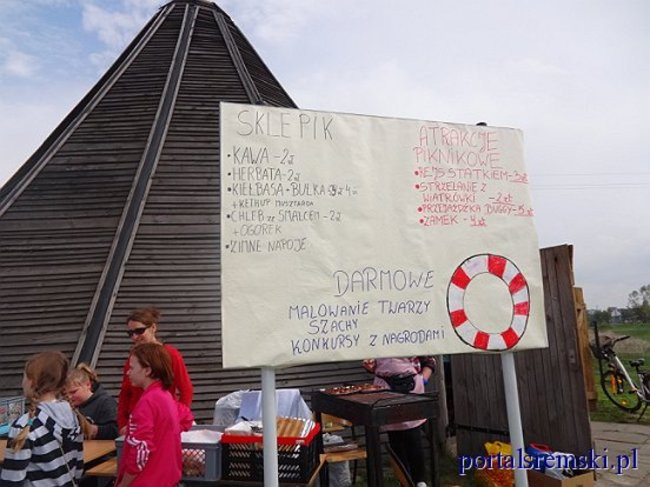 SKLEPIK
• KAWA - 2zł
• HERBATA - 2zł
• KIEŁBASA + BUŁKA - zł
+ KETHUP MUSZTARDA
• CHLEB ze SMALCEM - 2zł
+ OGÓREK
• ZIMNE NAPOJE
ATRAKCJE
PIKNIKOWE
• REJS STATKIEM - 3zł
• STRZELANIE Z
WIATRÓWKI - 2zł
• PRZEJAŻDŻKA BUGGY - 5zł
• ZAMEK - 4zł
DARMOWE
MALOWANIE TWARZY
SZACHY
KONKURSY Z NAGRODAMI
portalsremski.pl